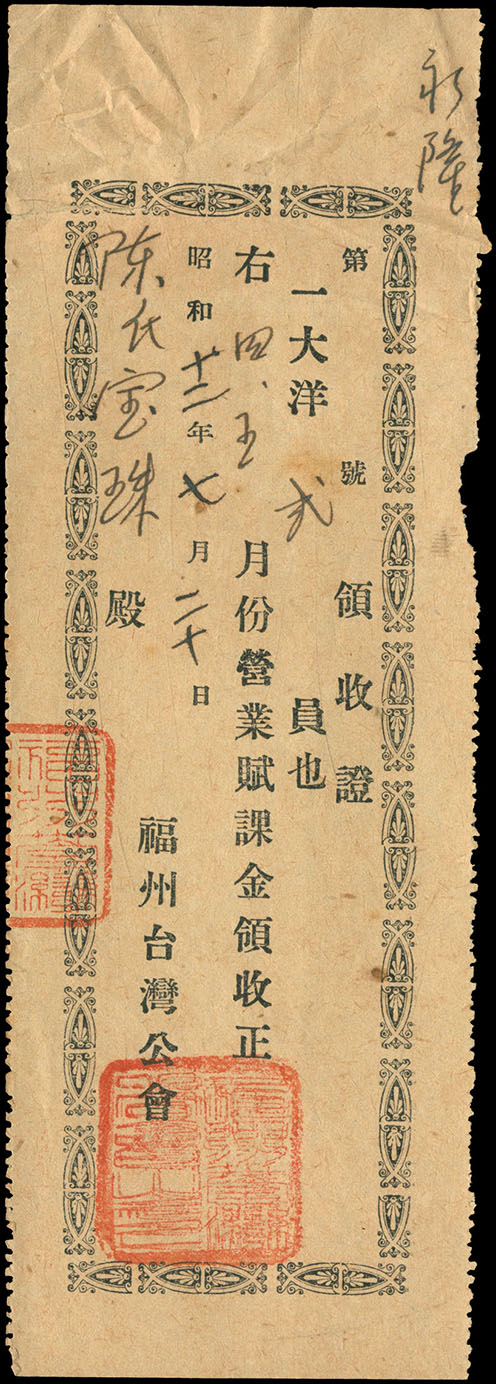 永隆
第 號 領收證
一大洋 弍 員也
右四、五月份營業賦課金領收正
昭和十二年七月二十日
福州台灣公會
陈氏宝珠 殿